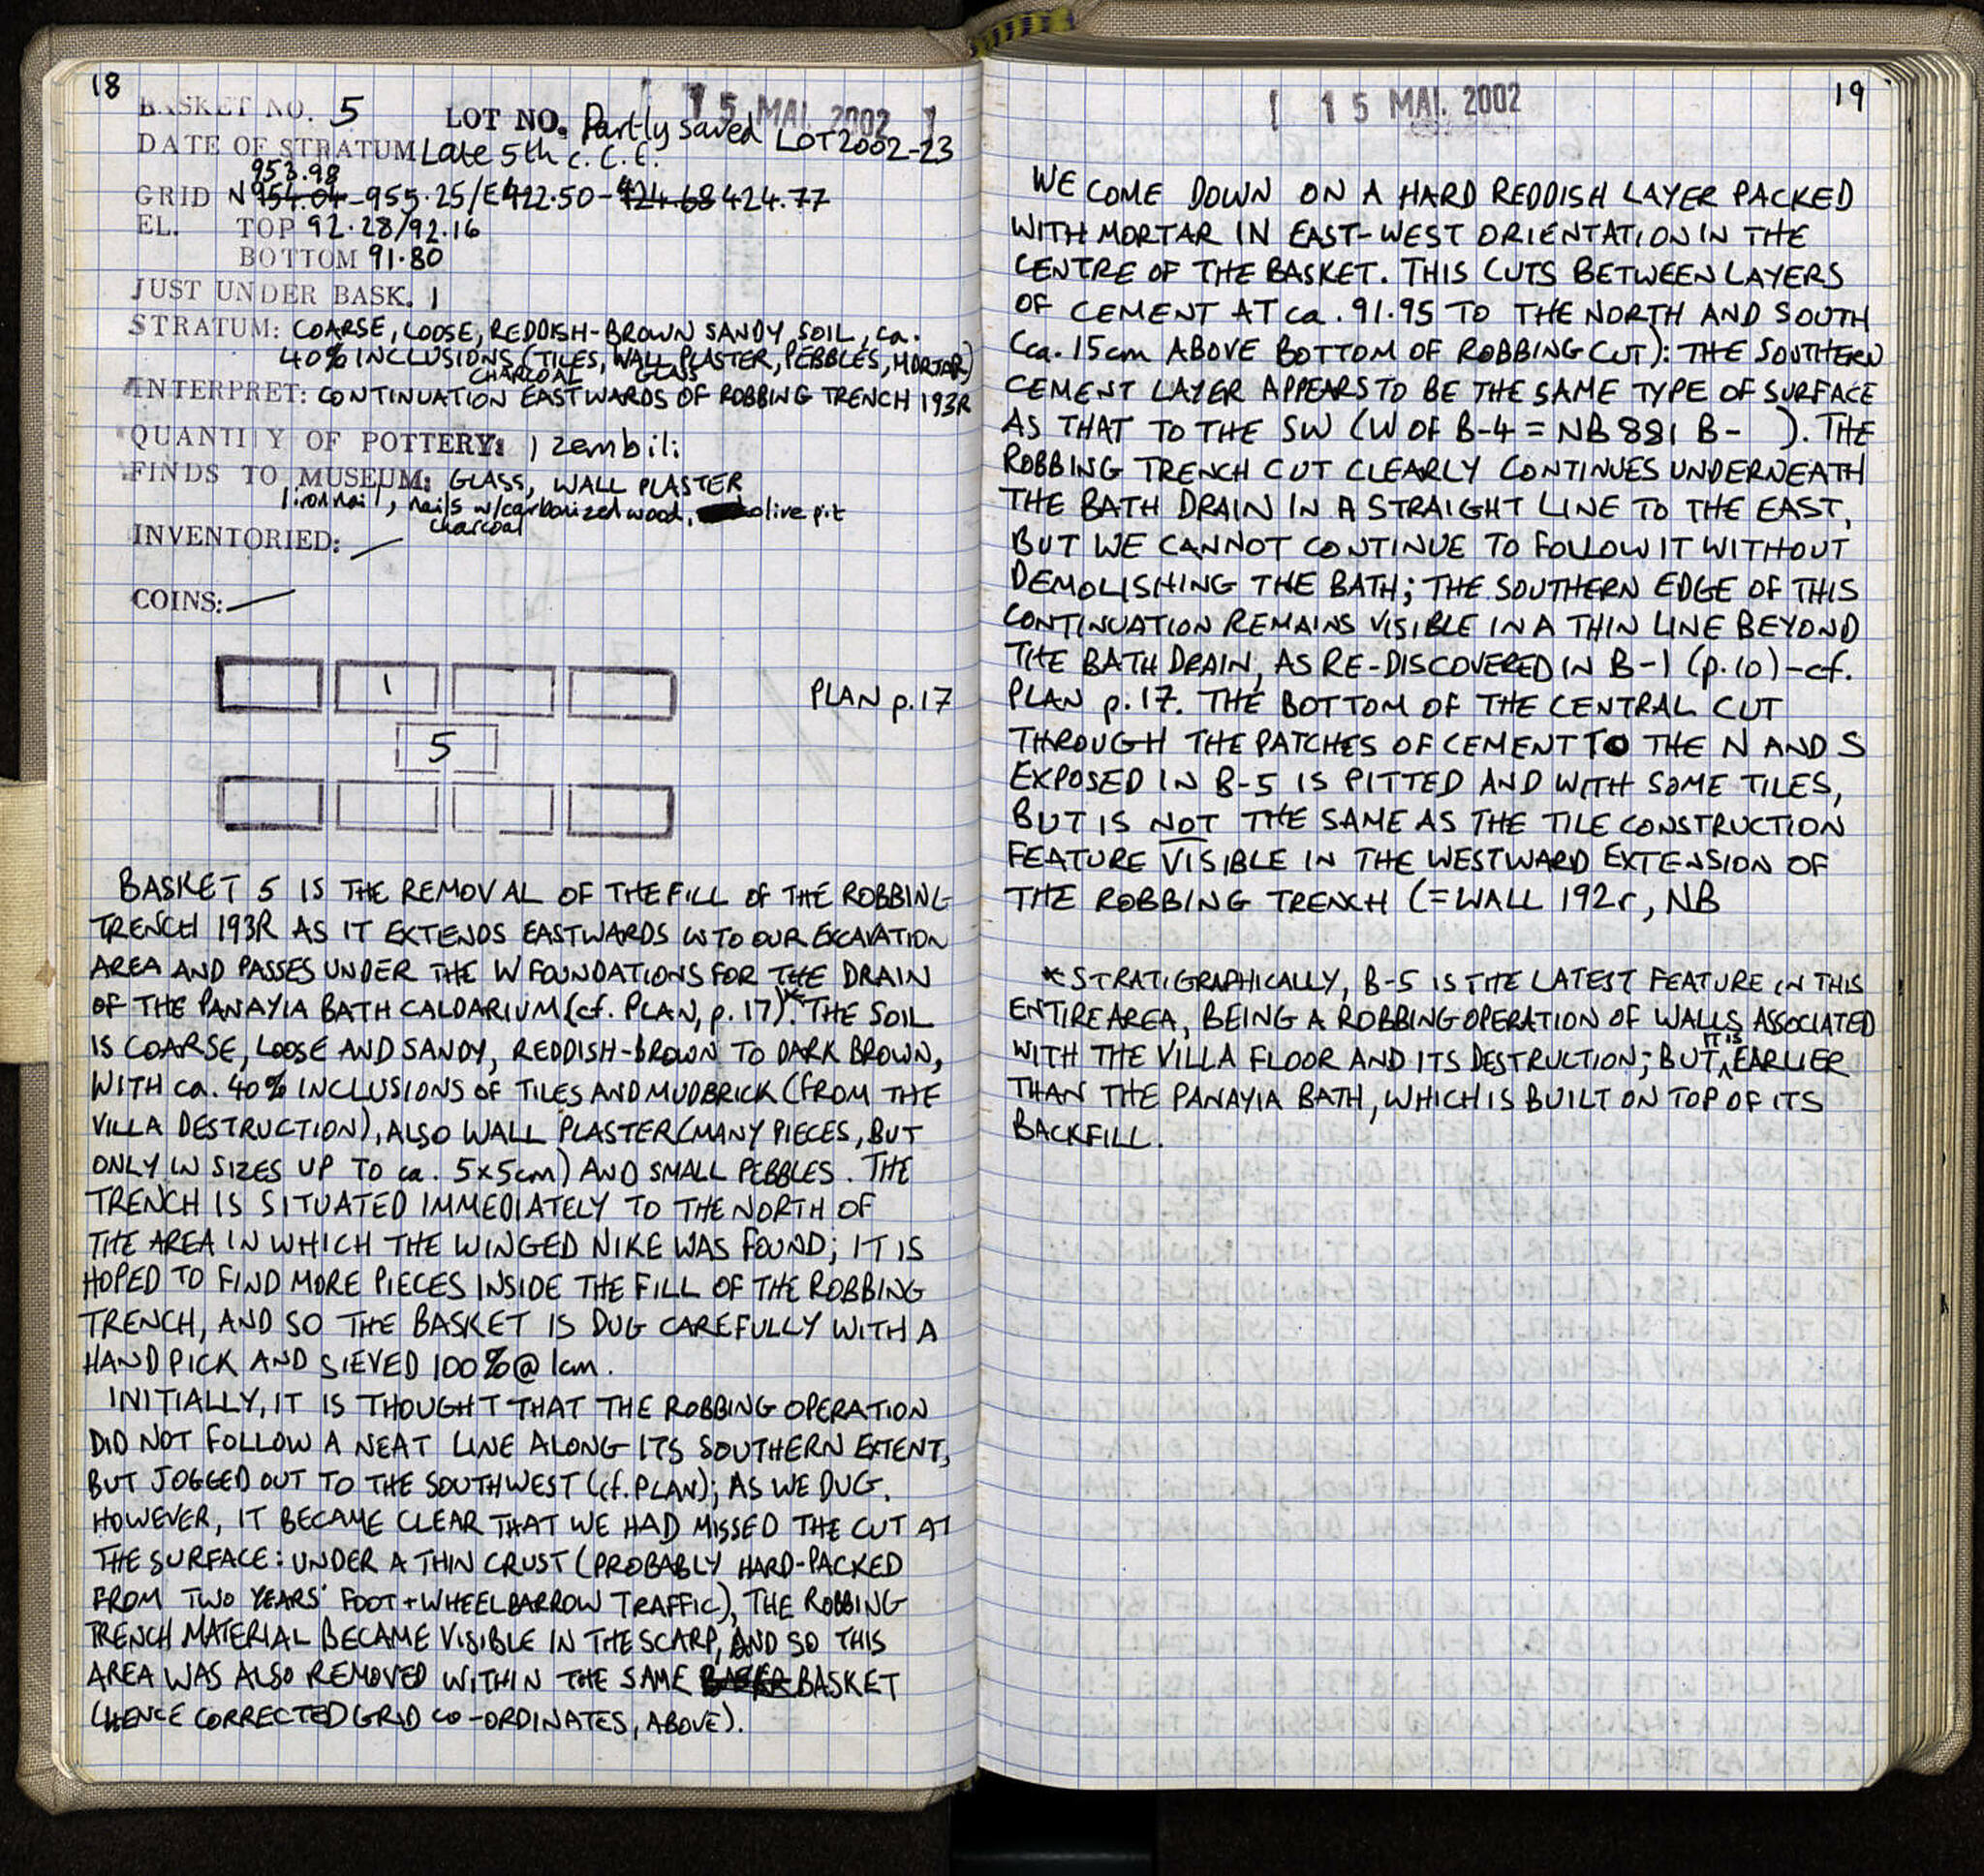 18
15 MAI. 2002
BASKET NO. 5 LOT NO. Partly saved LOT 2002-23
DATE OF STRATUM Late 5th c. C.E.
953.98
GRID N 954.04-955.25/E422.50-424.68 424.77
EL. TOP 92.28/92.16
BOTTOM 91.80
JUST UNDER BASK. 1
STRATUM: COARSE, LOOSE, REDDISH-BROWN SANDY SOIL, ca.
40% INCLUSIONS (TILES, WALL PLASTER, PEBBLES, MORTAR)
CHARCOAL GLASS
INTERPRET: CONTINUATION EASTWARDS OF ROBBING TRENCH 193R
QUANTITY OF POTTERY: 1 zembili
FINDS TO MUSEUM: GLASS, WALL PLASTER
1 iron nail, nails w/carbonized wood, olive pit
charcoal
INVENTORIED: —
COINS: —
1
PLAN p.17
5
BASKET 5 IS THE REMOVAL OF THE FILL OF THE ROBBING
TRENCH 193R AS IT EXTENDS EASTWARDS INTO OUR EXCAVATION
AREA AND PASSES UNDER THE W FOUNDATIONS FOR THE DRAIN
OF THE PANAYIA BATH CALDARIUM (cf. PLAN, p.17)*. THE SOIL
IS COARSE, LOOSE AND SANDY, REDDISH-BROWN TO DARK BROWN,
WITH ca. 40% INCLUSIONS OF TILES AND MUDBRICK (FROM THE
VILLA DESTRUCTION), ALSO WALL PLASTER (MANY PIECES, BUT
ONLY IN SIZES UP TO ca. 5x5cm) AND SMALL PEBBLES. THE
TRENCH IS SITUATED IMMEDIATELY TO THE NORTH OF
THE AREA IN WHICH THE WINGED NIKE WAS FOUND; IT IS
HOPED TO FIND MORE PIECES INSIDE THE FILL OF THE ROBBING
TRENCH, AND SO THE BASKET IS DUG CAREFULLY WITH A
HANDPICK AND SIEVED 100% @ 1cm.
INITIALLY, IT IS THOUGHT THAT THE ROBBING OPERATION
DID NOT FOLLOW A NEAT LINE ALONG ITS SOUTHERN EXTENT,
BUT JOGGED OUT TO THE SOUTHWEST (cf. PLAN); AS WE DUG,
HOWEVER, IT BECAME CLEAR THAT WE HAD MISSED THE CUT AT
THE SURFACE: UNDER A THIN CRUST (PROBABLY HARD-PACKED
FROM TWO YEARS' FOOT + WHEELBARROW TRAFFIC), THE ROBBING
TRENCH MATERIAL BECAME VISIBLE IN THE SCARP, AND SO THIS
AREA WAS ALSO REMOVED WITHIN THE SAME BASKET
(HENCE CORRECTED GRID CO-ORDINATES, ABOVE).
15 MAI. 2002
19
WE COME DOWN ON A HARD REDDISH LAYER PACKED
WITH MORTAR IN EAST-WEST ORIENTATION IN THE
CENTRE OF THE BASKET. THIS CUTS BETWEEN LAYERS
OF CEMENT AT ca. 91.95 TO THE NORTH AND SOUTH
(ca. 15cm ABOVE BOTTOM OF ROBBING CUT): THE SOUTHERN
CEMENT LAYER APPEARS TO BE THE SAME TYPE OF SURFACE
AS THAT TO THE SW (W OF B-4 = NB 881 B- ). THE
ROBBING TRENCH CUT CLEARLY CONTINUES UNDERNEATH
THE BATH DRAIN IN A STRAIGHT LINE TO THE EAST,
BUT WE CANNOT CONTINUE TO FOLLOW IT WITHOUT
DEMOLISHING THE BATH; THE SOUTHERN EDGE OF THIS
CONTINUATION REMAINS VISIBLE IN A THIN LINE BEYOND
THE BATH DRAIN, AS RE-DISCOVERED IN B-1 (p.10)-cf.
PLAN p.17. THE BOTTOM OF THE CENTRAL CUT
THROUGH THE PATCHES OF CEMENT TO THE N AND S
EXPOSED IN B-5 IS PITTED AND WITH SOME TILES,
BUT IS NOT THE SAME AS THE TILE CONSTRUCTION
FEATURE VISIBLE IN THE WESTWARD EXTENSION OF
THE ROBBING TRENCH (=WALL 192r, NB
*STRATIGRAPHICALLY, B-5 IS THE LATEST FEATURE IN THIS
ENTIRE AREA, BEING A ROBBING OPERATION OF WALLS ASSOCIATED
WITH THE VILLA FLOOR AND ITS DESTRUCTION; BUT IT IS EARLIER
THAN THE PANAYIA BATH, WHICH IS BUILT ON TOP OF ITS
BACKFILL.